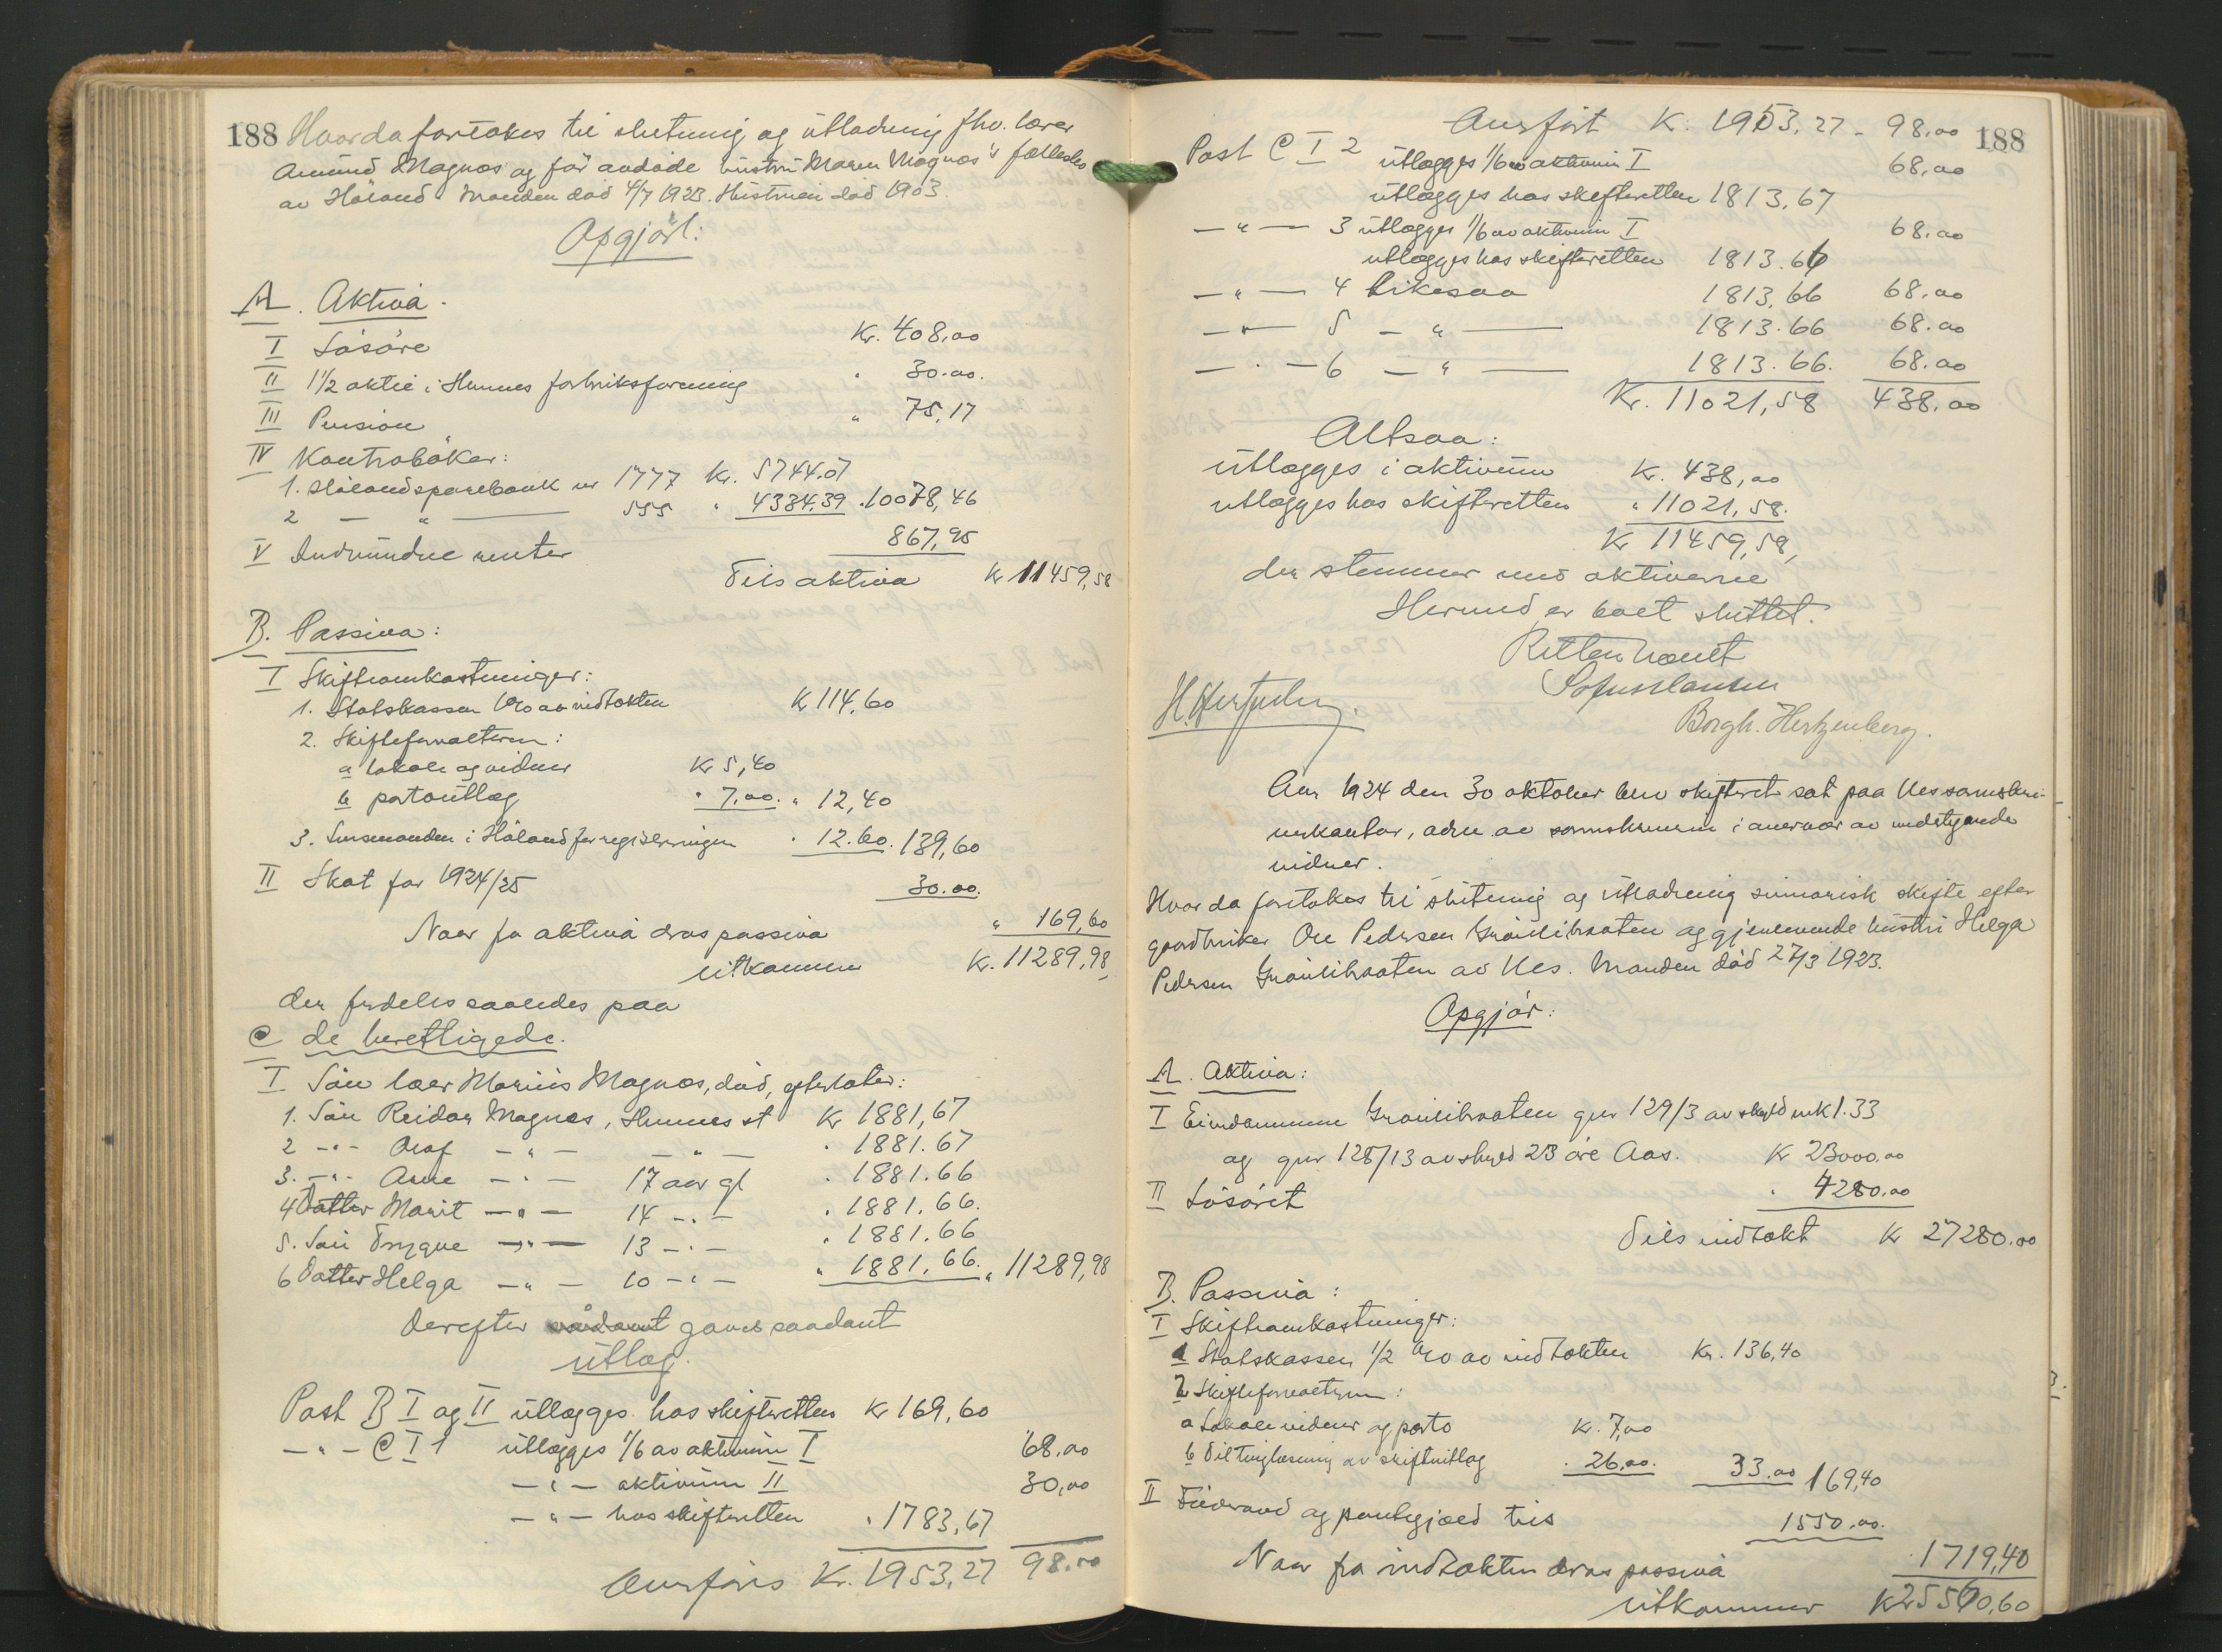 188 Hvorda foretokes til slutning og utlodning fhv. lærer
Amund Magnæs og før avdøde hustru Maren Magnæs's fællesbo
av Høland. Manden død 4/7 1923. Hustruen død 1903.
Opgjør:
A. Aktiva.
I Løsøre Kr. 408,00
II 1 1/2 aktie i Hemnes forbruksforening " 30.00.
III Pension " 75,17
IV Kontrabøker:
1. Hølandsparebank nr 1777 Kr. 5744.07
2 — " — 555 " 4334.39 . 10078,46
V Indvundne renter 867,95
Tils aktiva Kr 11459,58
B. Passiva:
I Skifteomkostninger:
1. Statskassen 1 % av indtækten K 114,60
2. Skifteforvalteren:
a lokale og vidner Kr 5,40
b portoutlæg " 7.00. " 12,40
3. Lensmanden i Høland for registreringen . 12.60. 139,60
II Skat for 1924/25 30.00.
Naar fra aktiva dras passiva " 169,60
utkommer K. 11289,98
der fordeles saaledes paa
C de berettigede.
I Søn lærer Marius Magnæs, død, efterlater:
1. Søn Reidar Magnæs, Hemnes st Kr 1881,67
2 -"- Olaf -"- — " — . 1881.67
3. -"- Arne -"- 17 aar gl . 1881.66
4 Datter Marit -"- 14 -"- . 1881.66.
5. Søn Trygve -"- 13 -"- . 1881.66
6 Datter Helga -"- 10 -"- " 1881.66. " 11289,98
Derefter gaves saadant
utlæg.
Post B I og II utlægges hos skifteretten Kr 169,60
-"- C I 1 utlægges 1/6 av aktivum I 68.00
-"- aktivum II 30,00
-"- hos skifteretten " 1783,67
Overføres Kr. 1953,27 98.00
Overført K. 1953,27 - 98.00 188
Post C I 2 utlægges 1/6 av aktivum I 68,00
utlægges hos skifteretten 1813,67
—"— 3 utlægges 1/6 av aktivum I 68.00
utlægges hos skifteretten 1813.66
—"— 4 Likesaa 1813,66 68.00
—"— 5 — " — 1813.66 68.00
—"— 6 — " — 1813.66. 68.00
Kr. 11021,58 438.00
Altsaa:
utlægges i aktivum Kr. 438,00
utlægges hos skifteretten " 11021,58.
Kr 11459,58,
der stemmer med aktiverne
Hermed er boet sluttet.
Retten hævet
Sofus Hansen
Borgh. Hertzenberg.
Aar 1924 den 30 oktober blev skifteret sat paa Nes sorenskri-
verkontor, adm. av sorenskriveren i nærvær av undertegnede
vidner.
Hvor da foretokes til slutning og utlodning summarisk skifte efter
gaardbruker Ole Pedersen og gjenlevende hustru Helga
Pedersen av Nes. Manden død 27/3 1923.
Opgjør:
A. Aktiva:
I Eiendommene gnr 129/3 av skyld mk 1.33
og gnr 128/13 av skyld 23 øre Aas. K 23000.00
II Løsøret . 4280.00
Tils indtækt K 27280.00
B. Passiva:
I Skifteomkostninger:
1 Statskassen 1/2 % av indtækten Kr. 136,40
2 Skifteforvalteren:
a Lokale vidner og porto K. 7,00
b Til tinglæsning av skifteutlæg . 26,00. 33.00 169,40
II og pantegjæld tils 1550.00.
Naar fra indtækten dras passiva . 1719,40
utkommer K 25560,60